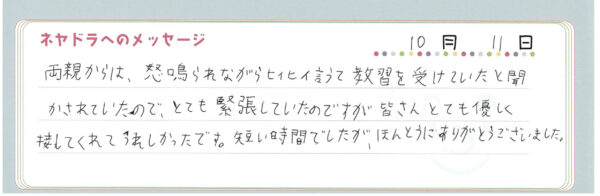 ネヤドラへのメッセージ 10月 11日
両親からは、怒鳴られながらヒイヒイ言って教習を受けていたと聞
かされていたので、とても緊張していたのですが皆さんとても優しく
接してくれてうれしかったです。短い時間でしたが、ほんとうにありがとうございました。